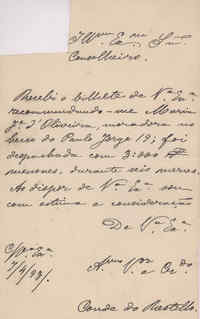 Illmo Exmo Snr
Conselheiro.
Recebi o bilhete de Va Exa
recommendando-me Maria
Ja d'Oliveira, moradora no
beco do Paulo Jorge 19; foi
despachada com 3:000
mensaes, durante seis mezes.
Ao dispor de Va Exa sou
com estima e consideração
De Va Exa
Conde do Restello.